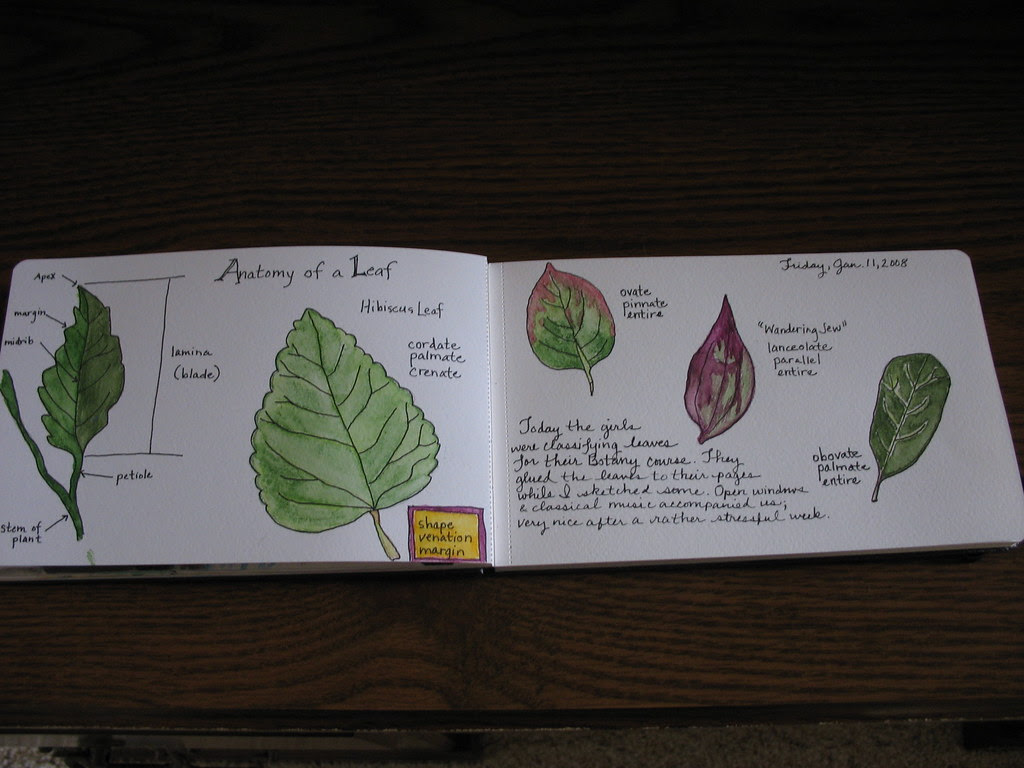 Anatomy of a Leaf
Apex
margin
midrib
lamina
(blade)
petiole
stem of
plant
Hibiscus Leaf
cordate
palmate
crenate
shape
venation
margin
Friday, Jan. 11, 2008
ovate
pinnate
entire
"Wandering Jew"
lanceolate
parallel
entire
obovate
palmate
entire
Today the girls
were classifying leaves
for their Botany course. They
glued the leaves to their pages
while I sketched some. Open windows
& classical music accompanied us;
very nice after a rather stressful week.